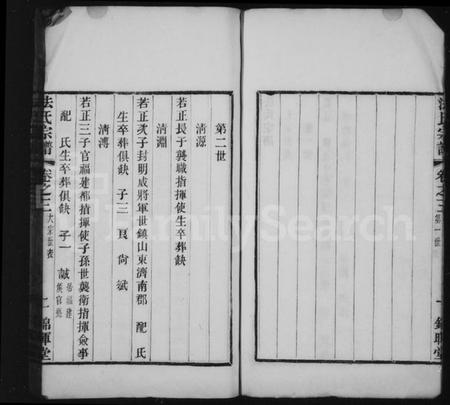 法氏宗譜
卷之三
第一世
一
錦暉堂
第二世
清源
若正長子襲職指揮使生卒葬缺
清淵
若正次子封明威將軍世鎮山東濟南郡 配 氏
生卒葬俱缺 子三 艮 尚 斌
清溥
若正三子官福建都指揮使子孫世襲衛指揮僉事
配 氏生卒葬俱缺 子一 誠
居福建
法氏宗譜
卷之三
大宗世表
二
錦暉堂
FamilySearch